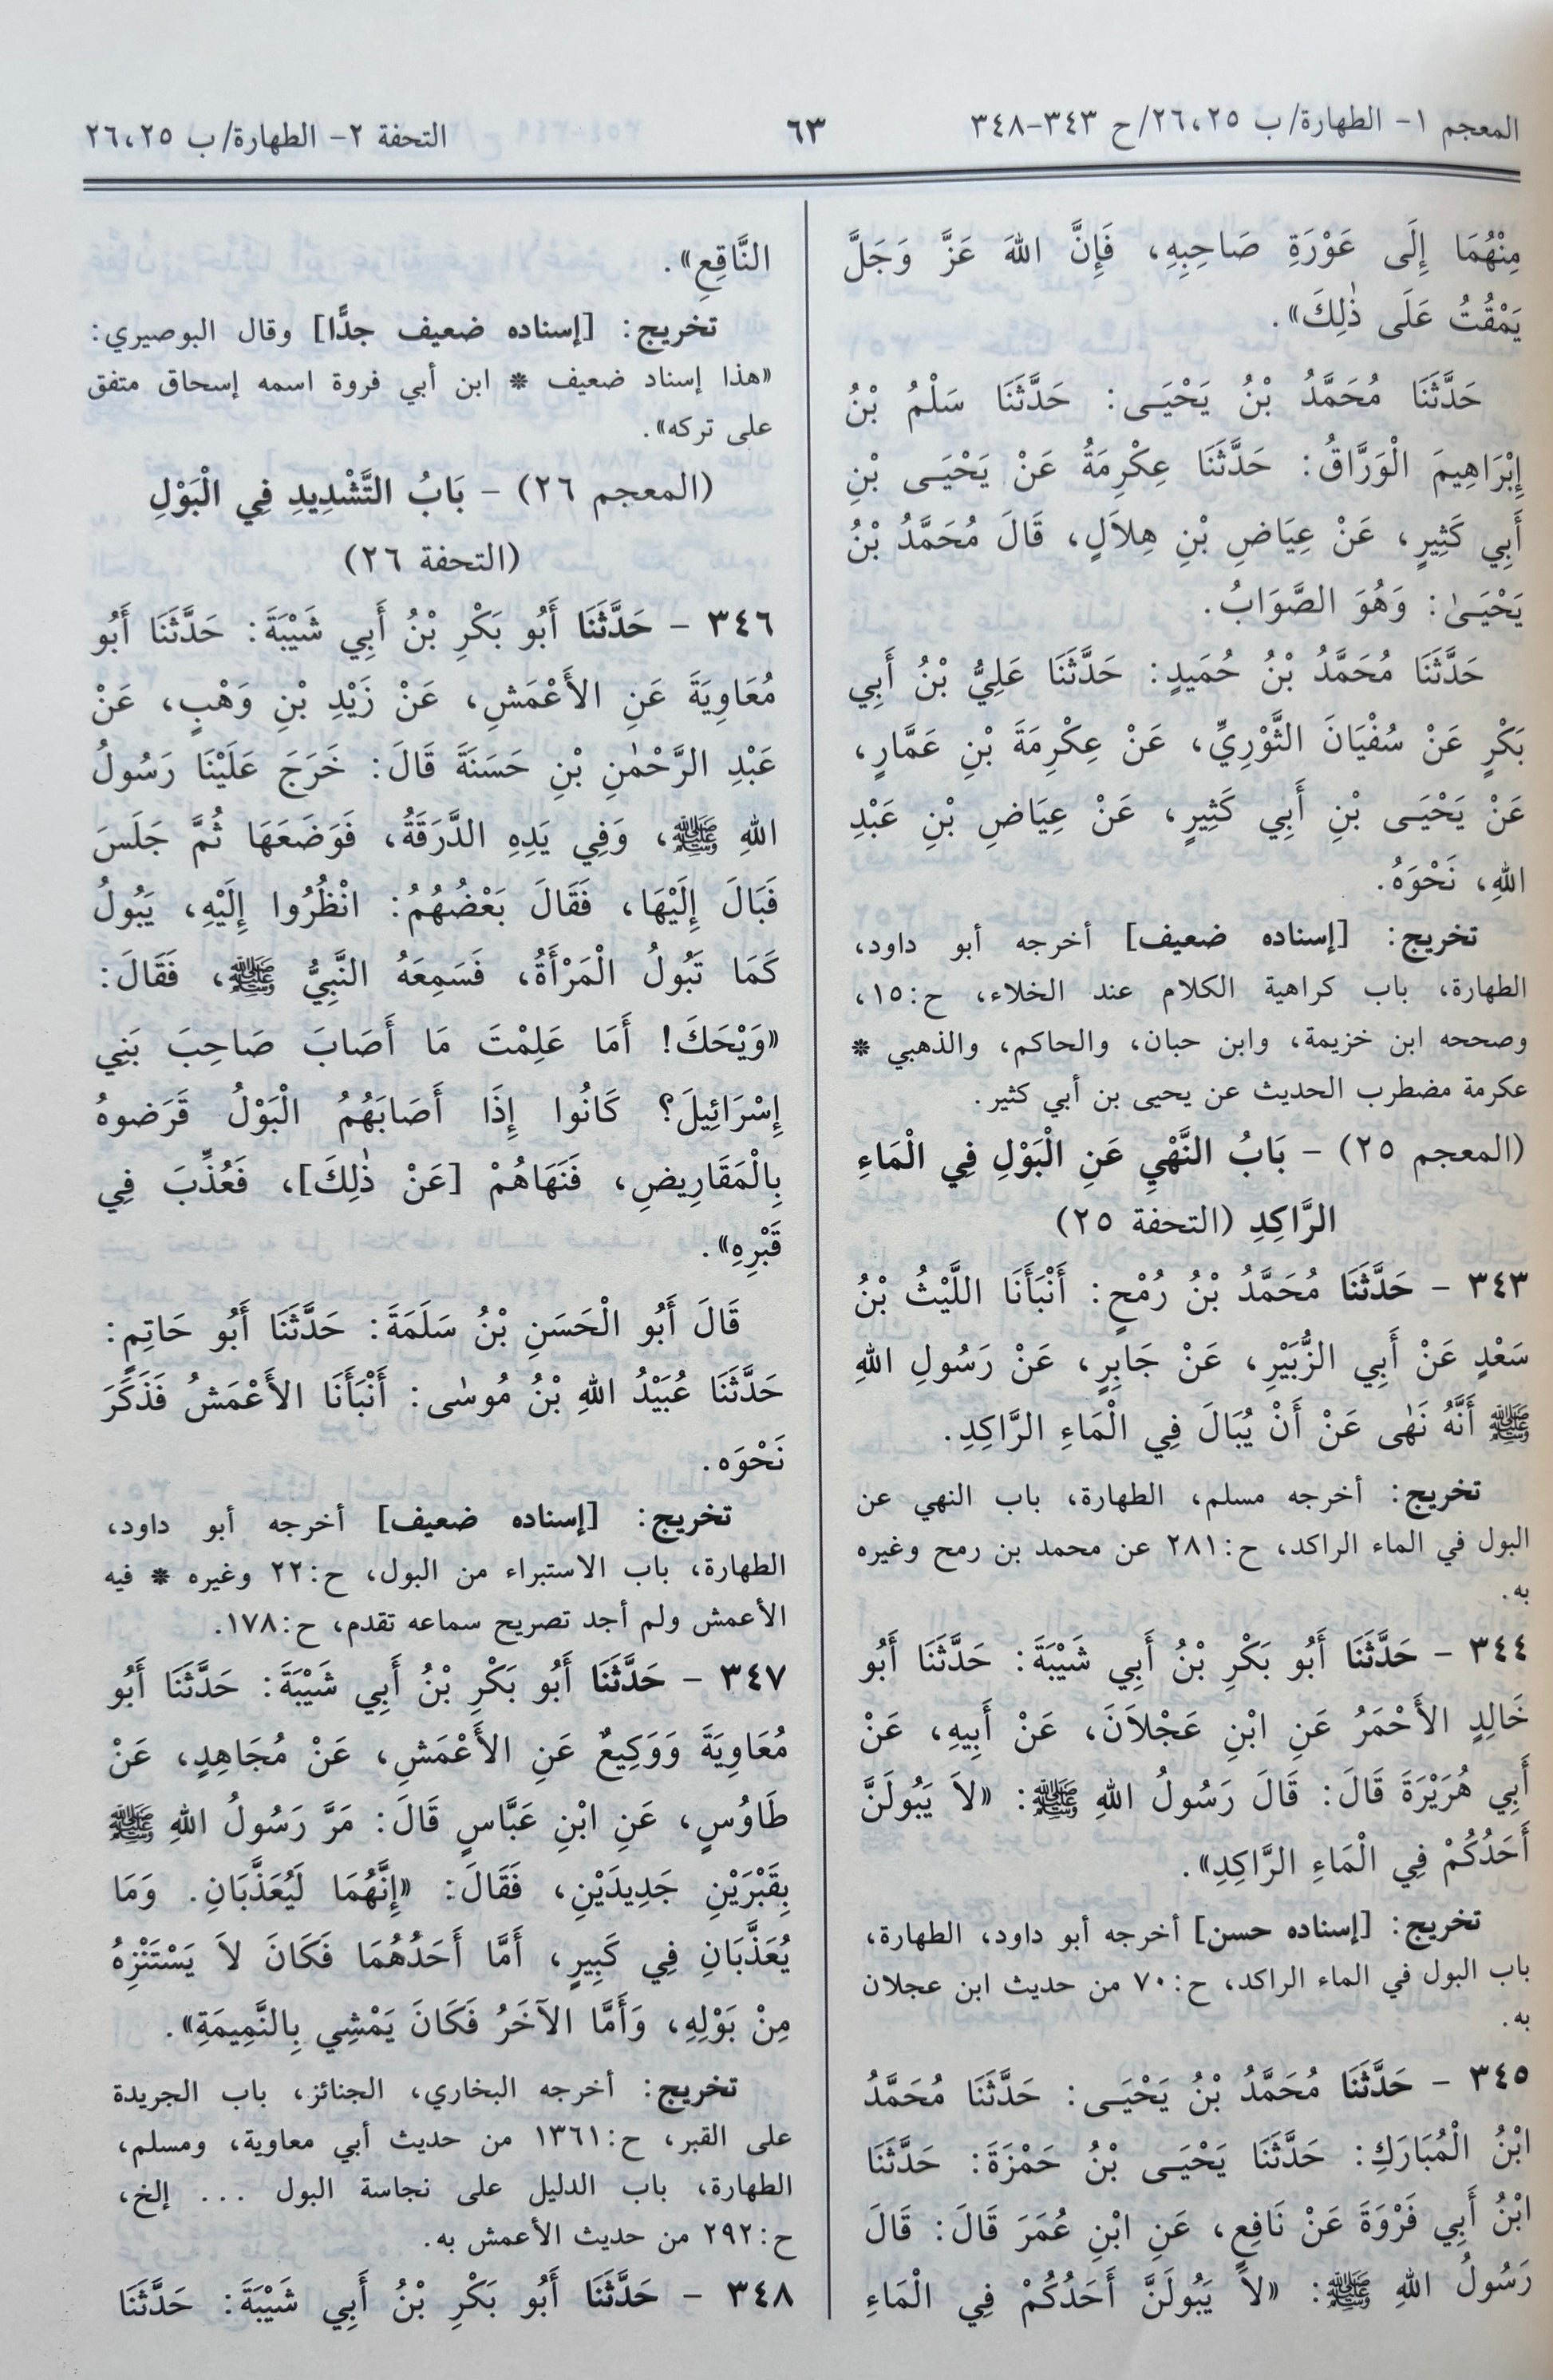 المعجم ١- الطهارة/ ب ٢٦،٢٥/ ح ٣٤٣-٣٤٨
٦٣
التحفة ٢- الطهارة/ ب ٢٦،٢٥
مِنْهُمَا إِلَى عَوْرَةِ صَاحِبِهِ، فَإِنَّ اللهَ عَزَّ وَجَلَّ
يَمْقُتُ عَلَى ذٰلِكَ».
حَدَّثَنَا مُحَمَّدُ بْنُ يَحْيَى: حَدَّثَنَا سَلْمُ بْنُ
إِبْرَاهِيمَ الْوَرَّاقُ: حَدَّثَنَا عِكْرِمَةُ عَنْ يَحْيَى بْنِ
أَبِي كَثِيرٍ، عَنْ عِيَاضِ بْنِ هِلاَلٍ، قَالَ مُحَمَّدُ بْنُ
يَحْيَىٰ: وَهُوَ الصَّوَابُ.
حَدَّثَنَا مُحَمَّدُ بْنُ حُمَيدٍ: حَدَّثَنَا عَلِيُّ بْنُ أَبِي
بَكْرٍ عَنْ سُفْيَانَ الثَّوْرِيِّ، عَنْ عِكْرِمَةَ بْنِ عَمَّارٍ،
عَنْ يَحْيَى بْنِ أَبِي كَثِيرٍ، عَنْ عِيَاضِ بْنِ عَبْدِ
اللهِ، نَحْوَهُ.
تخريج: [إسناده ضعيف] أخرجه أبو داود،
الطهارة، باب كراهية الكلام عند الخلاء، ح:١٥،
وصححه ابن خزيمة، وابن حبان، والحاكم، والذهبي *
عكرمة مضطرب الحديث عن يحيى بن أبي كثير.
(المعجم ٢٥) - بَابُ النَّهْيِ عَنِ الْبَوْلِ فِي الْمَاءِ
الرَّاكِدِ (التحفة ٢٥)
٣٤٣ - حَدَّثَنَا مُحَمَّدُ بْنُ رُمْحٍ: أَنْبَأَنَا اللَّيْثُ بْنُ
سَعْدٍ عَنْ أَبِي الزُّبَيْرِ، عَنْ جَابِرٍ، عَنْ رَسُولِ اللهِ
ﷺ أَنَّهُ نَهٰى عَنْ أَنْ يُبَالَ فِي الْمَاءِ الرَّاكِدِ.
تخريج: أخرجه مسلم، الطهارة، باب النهي عن
البول في الماء الراكد، ح:٢٨١ عن محمد بن رمح وغيره
به.
٣٤٤ - حَدَّثَنَا أَبُو بَكْرِ بْنُ أَبِي شَيْبَةَ: حَدَّثَنَا أَبُو
خَالِدٍ الأَحْمَرُ عَنِ ابْنِ عَجْلاَنَ، عَنْ أَبِيهِ، عَنْ
أَبِي هُرَيْرَةَ قَالَ: قَالَ رَسُولُ اللهِ ﷺ: «لاَ يَبُولَنَّ
أَحَدُكُمْ فِي الْمَاءِ الرَّاكِدِ».
تخريج: [إسناده حسن] أخرجه أبو داود، الطهارة،
باب البول في الماء الراكد، ح:٧٠ من حديث ابن عجلان
به.
٣٤٥ - حَدَّثَنَا مُحَمَّدُ بْنُ يَحْيَى: حَدَّثَنَا مُحَمَّدُ
ابْنُ الْمُبَارَكِ: حَدَّثَنَا يَحْيَى بْنُ حَمْزَةَ: حَدَّثَنَا
ابْنُ أَبِي فَرْوَةَ عَنْ نَافِعٍ، عَنِ ابْنِ عُمَرَ قَالَ: قَالَ
رَسُولُ اللهِ ﷺ: «لاَ يَبُولَنَّ أَحَدُكُمْ فِي الْمَاءِ
النَّاقِعِ».
تخريج: [إسناده ضعيف جدًّا] وقال البوصيري:
«هذا إسناد ضعيف * ابن أبي فروة اسمه إسحاق متفق
على تركه».
(المعجم ٢٦) - بَابُ التَّشْدِيدِ فِي الْبَوْلِ
(التحفة ٢٦)
٣٤٦ - حَدَّثَنَا أَبُو بَكْرِ بْنُ أَبِي شَيْبَةَ: حَدَّثَنَا أَبُو
مُعَاوِيَةَ عَنِ الأَعْمَشِ، عَنْ زَيْدِ بْنِ وَهْبٍ، عَنْ
عَبْدِ الرَّحْمٰنِ بْنِ حَسَنَةَ قَالَ: خَرَجَ عَلَيْنَا رَسُولُ
اللهِ ﷺ، وَفِي يَدِهِ الدَّرَقَةُ، فَوَضَعَهَا ثُمَّ جَلَسَ
فَبَالَ إِلَيْهَا، فَقَالَ بَعْضُهُمُ: انْظُرُوا إِلَيْهِ، يَبُولُ
كَمَا تَبُولُ الْمَرْأَةُ، فَسَمِعَهُ النَّبِيُّ ﷺ، فَقَالَ:
«وَيْحَكَ! أَمَا عَلِمْتَ مَا أَصَابَ صَاحِبَ بَنِي
إِسْرَائِيلَ؟ كَانُوا إِذَا أَصَابَهُمُ الْبَوْلُ قَرَضوهُ
بِالْمَقَارِيضِ، فَنَهَاهُمْ [عَنْ ذٰلِكَ]، فَعُذِّبَ فِي
قَبْرِهِ».
قَالَ أَبُو الْحَسَنِ بْنُ سَلَمَةَ: حَدَّثَنَا أَبُو حَاتِمٍ:
حَدَّثَنَا عُبَيْدُ اللهِ بْنُ مُوسٰى: أَنْبَأَنَا الأَعْمَشُ فَذَكَرَ
نَحْوَه.
تخريج: [إسناده ضعيف] أخرجه أبو داود،
الطهارة، باب الاستبراء من البول، ح:٢٢ وغيره * فيه
الأعمش ولم أجد تصريح سماعه تقدم، ح:١٧٨.
٣٤٧ - حَدَّثَنَا أَبُو بَكْرِ بْنُ أَبِي شَيْبَةَ: حَدَّثَنَا أَبُو
مُعَاوِيَةَ وَوَكِيعٌ عَنِ الأَعْمَشِ، عَنْ مُجَاهِدٍ، عَنْ
طَاوُسٍ، عَنِ ابْنِ عَبَّاسٍ قَالَ: مَرَّ رَسُولُ اللهِ ﷺ
بِقَبْرَيْنِ جَدِيدَيْنِ، فَقَالَ: «إِنَّهُمَا لَيُعَذَّبَانِ. وَمَا
يُعَذَّبَانِ فِي كَبِيرٍ، أَمَّا أَحَدُهُمَا فَكَانَ لاَ يَسْتَنْزِهُ
مِنْ بَوْلِهِ، وَأَمَّا الآخَرُ فَكَانَ يَمْشِي بِالنَّمِيمَةِ».
تخريج: أخرجه البخاري، الجنائز، باب الجريدة
على القبر، ح:١٣٦١ من حديث أبي معاوية، ومسلم،
الطهارة، باب الدليل على نجاسة البول ... إلخ،
ح:٢٩٢ من حديث الأعمش به.
٣٤٨ - حَدَّثَنَا أَبُو بَكْرِ بْنُ أَبِي شَيْبَةَ: حَدَّثَنَا